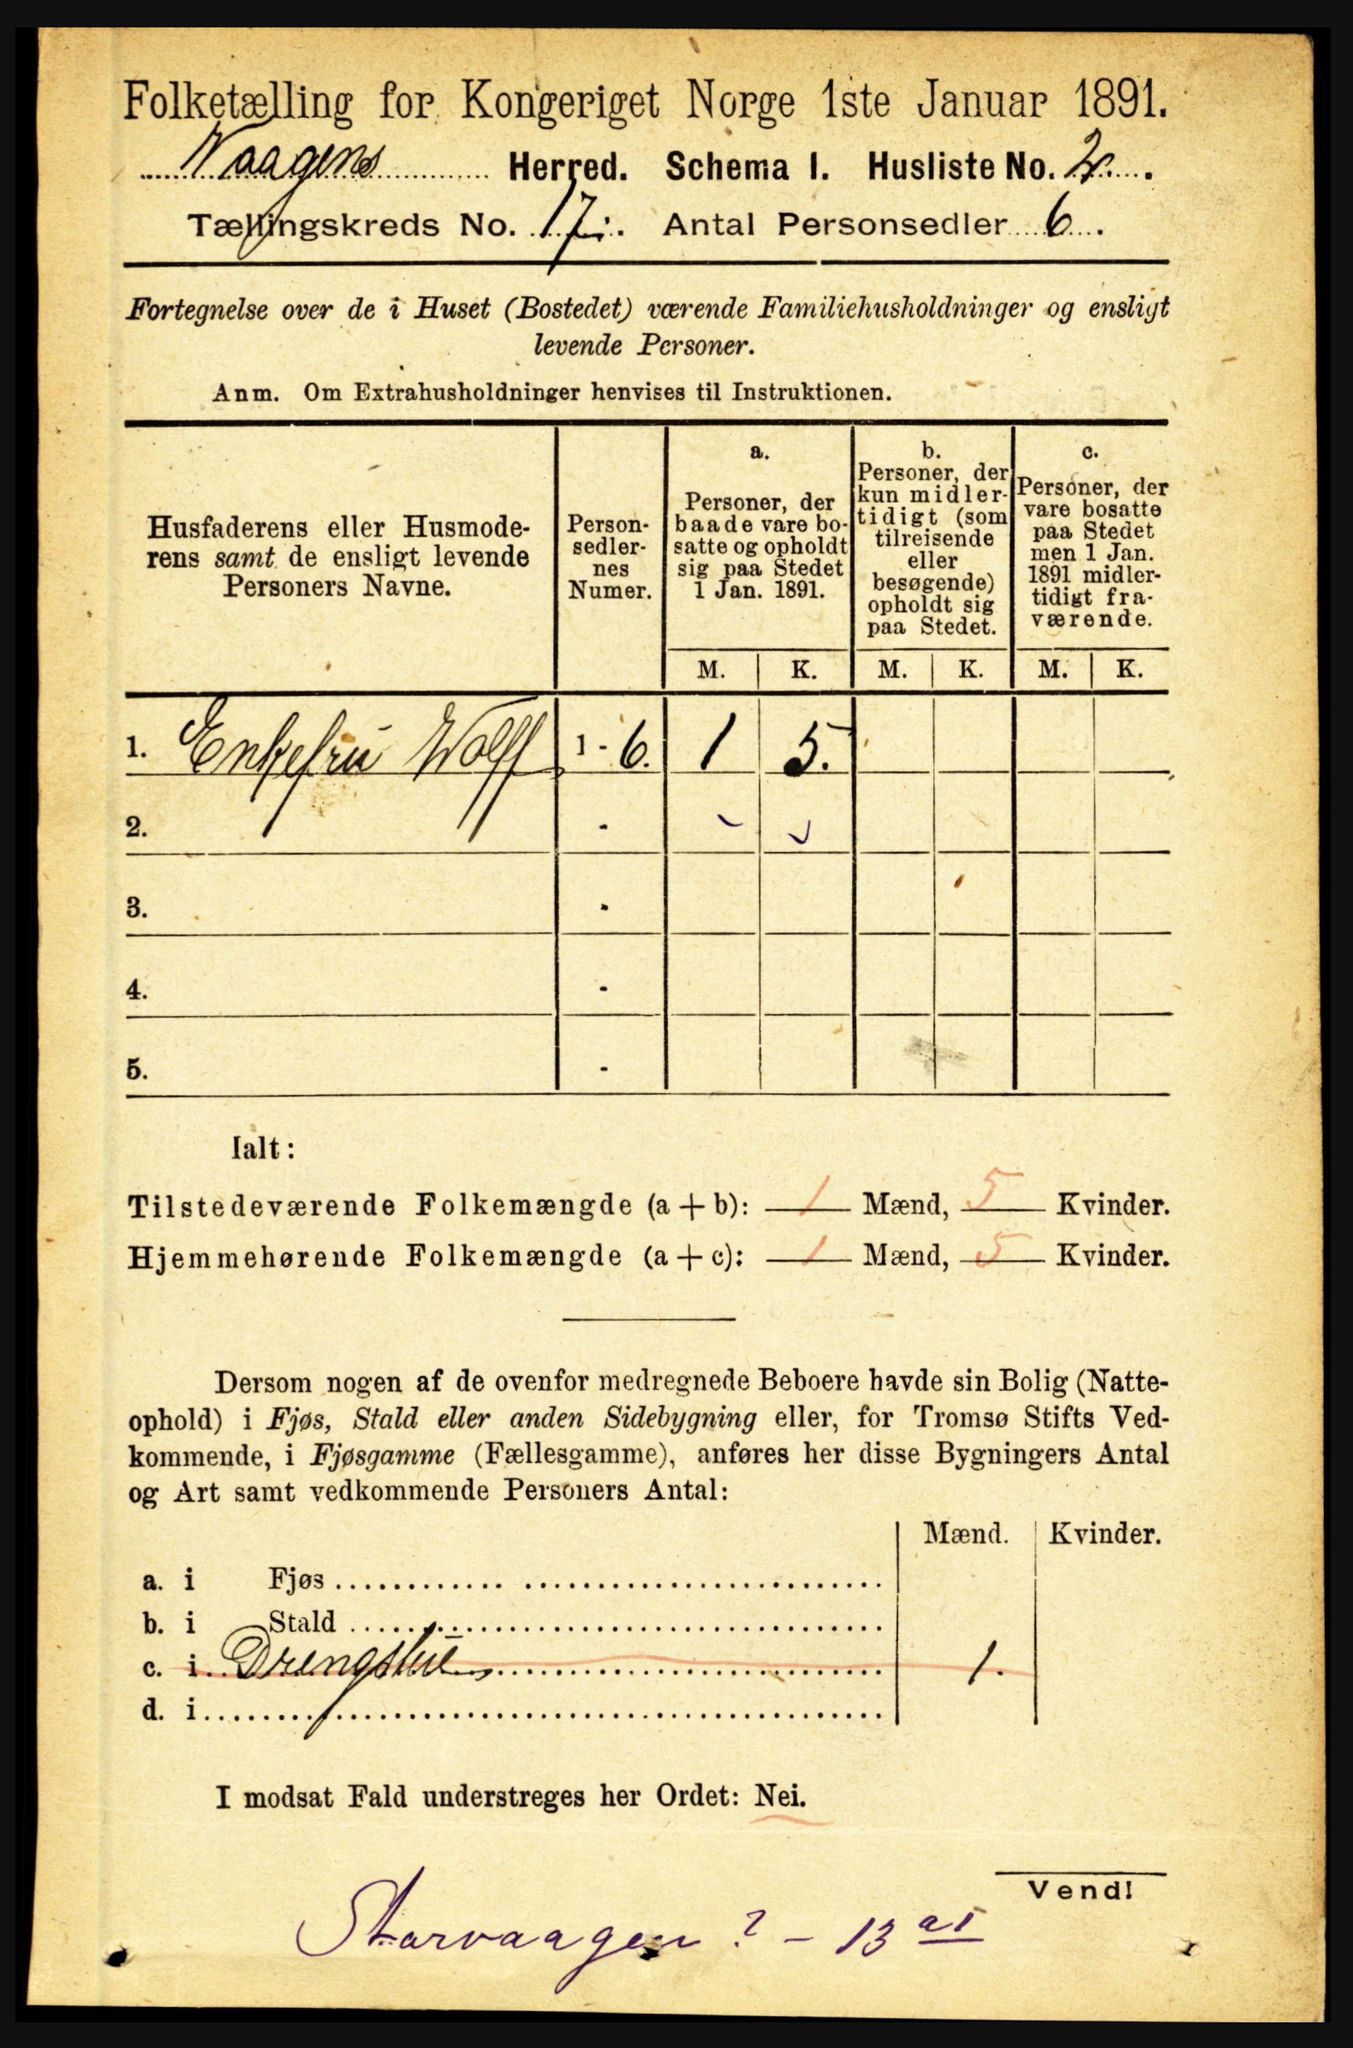 Folketælling for Kongeriget Norge 1ste Januar 1891.
Vaagens Herred. Schema I. Husliste No. 2.
Tællingskreds No. 17. Antal Personsedler 6.
Fortegnelse over de i Huset (Bostedet) værende Familiehusholdninger og ensligt
levende Personer.
Anm. Om Extrahusholdninger henvises til Instruktionen.
Husfaderens eller Husmode-
rens samt de ensligt levende
Personers Navne.
Person-
sedler-
nes
Numer.
a.
Personer, der
baade vare bo-
satte og opholdt
sig paa Stedet
1 Jan. 1891.
b.
Personer, der
kun midler-
tidigt (som
tilreisende
eller
besøgende)
opholdt sig
paa Stedet.
c.
Personer, der
vare bosatte
paa Stedet
men 1 Jan.
1891 midler-
tidigt fra-
værende.
M. K. M. K. M. K.
1. Enkefru Wolff 1 - 6. 1 5.
2. -
3. -
4. -
5. -
Ialt:
Tilstedeværende Folkemængde (a + b): 1 Mænd, 5 Kvinder.
Hjemmehørende Folkemængde (a + c): 1 Mænd, 5 Kvinder.
Dersom nogen af de ovenfor medregnede Beboere havde sin Bolig (Natte-
ophold) i Fjøs, Stald eller anden Sidebygning eller, for Tromsø Stifts Ved-
kommende, i Fjøsgamme (Fællesgamme), anføres her disse Bygningers Antal
og Art samt vedkommende Personers Antal:
Mænd. Kvinder.
a. i Fjøs
b. i Stald
c. i Drengstue 1.
d. i
I modsat Fald understreges her Ordet: Nei.
Vend!
Storvaagen ? - 13 a1